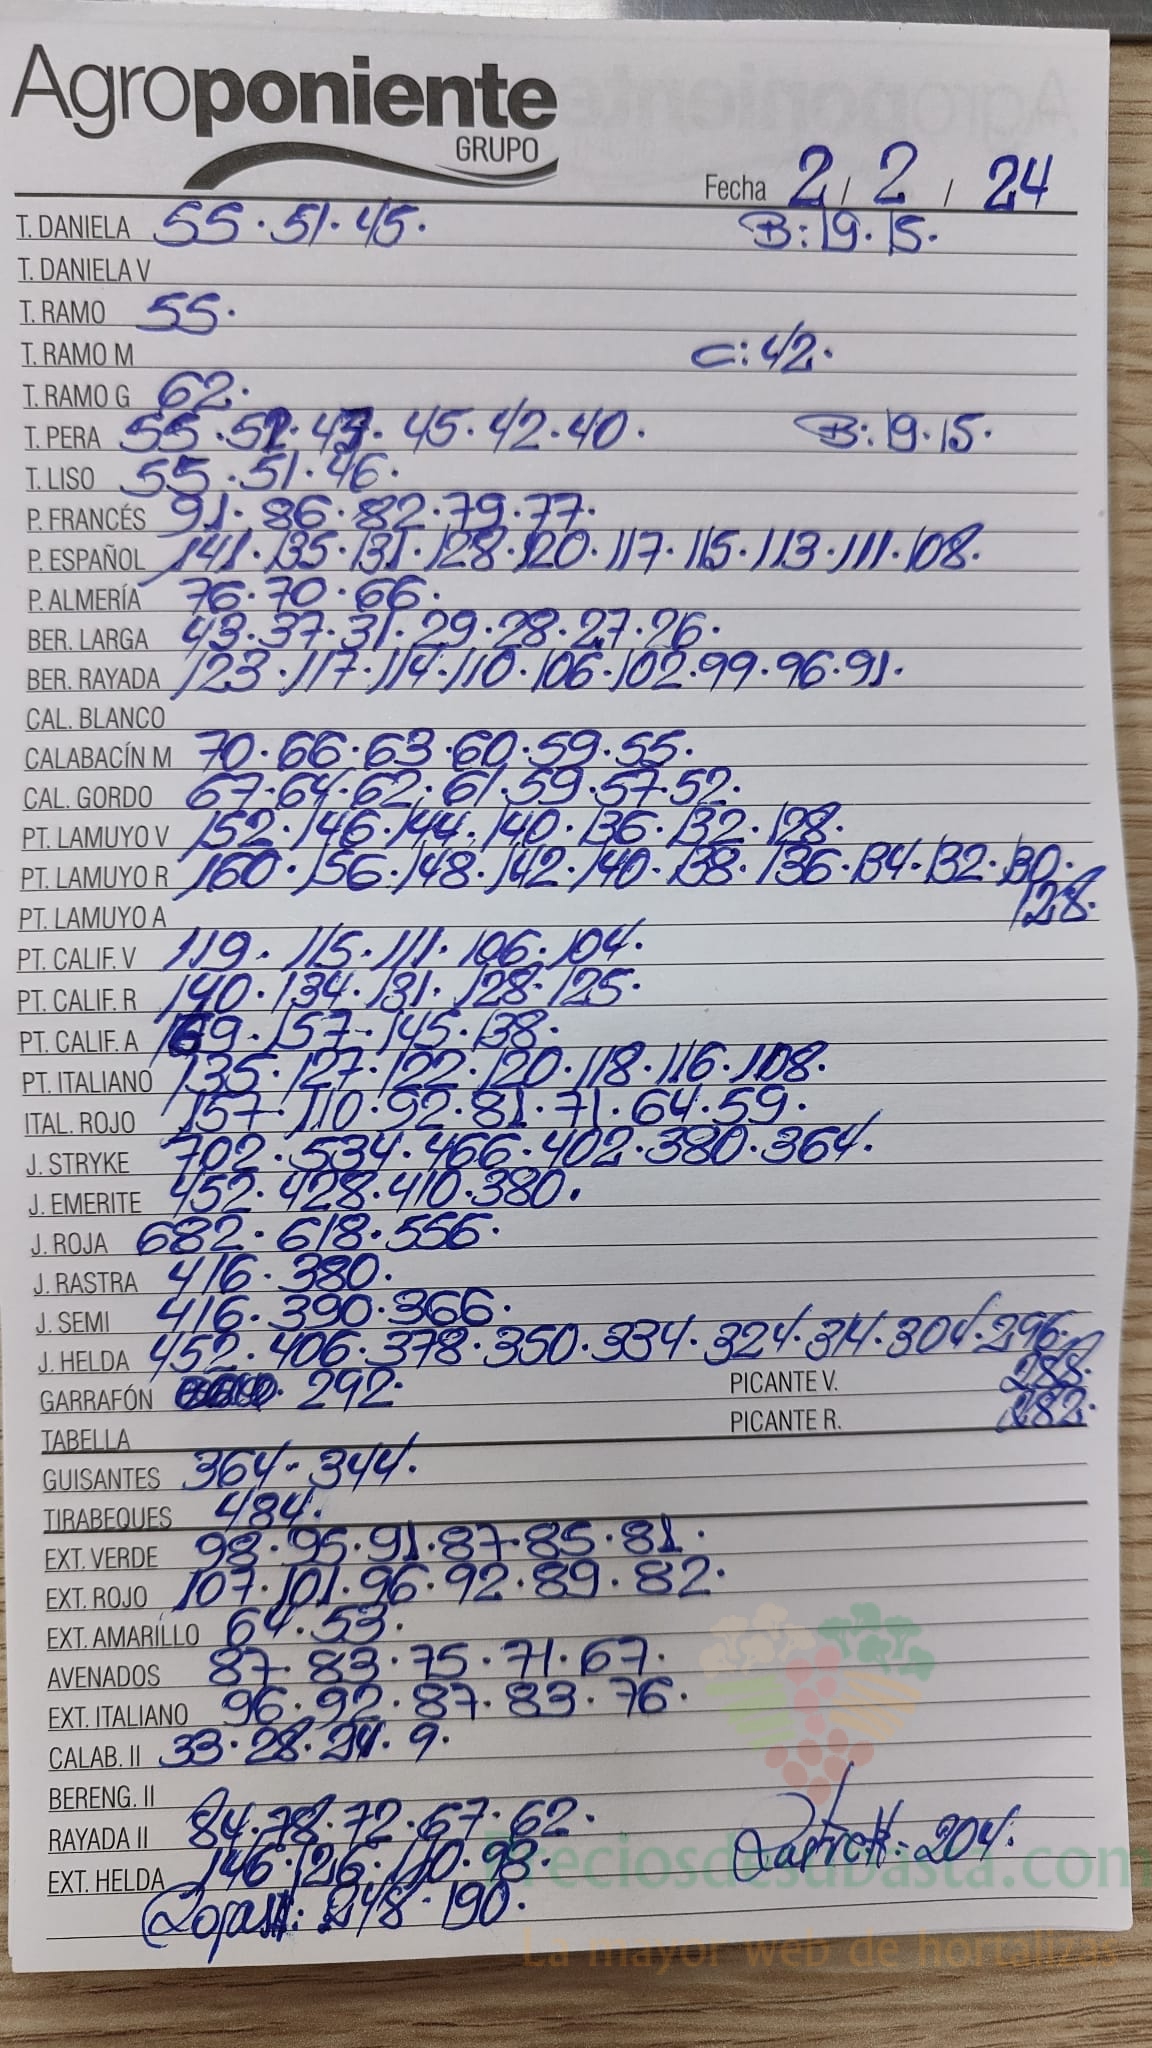 Agroponiente
GRUPO
Fecha 2 / 2 / 24
T. DANIELA 55 · 51 · 45 · B: 19 · 15 ·
T. DANIELA V
T. RAMO 55 ·
T. RAMO M C: 42 ·
T. RAMO G 62 ·
T. PERA 55 · 47 · 45 · 42 · 40 · B: 19 · 15 ·
T. LISO 55 · 51 · 46 ·
P. FRANCÉS 91 · 86 · 82 · 79 · 77 ·
P. ESPAÑOL 141 · 135 · 131 · 128 · 120 · 117 · 115 · 113 · 111 · 108 ·
P. ALMERÍA 76 · 70 · 66 ·
BER. LARGA 43 · 37 · 31 · 29 · 28 · 27 · 26 ·
BER. RAYADA 123 · 117 · 114 · 110 · 106 · 102 · 99 · 96 · 91 ·
CAL. BLANCO
CALABACÍN M 70 · 66 · 63 · 60 · 59 · 55 ·
CAL. GORDO 67 · 64 · 62 · 61 · 59 · 57 · 52 ·
PT. LAMUYO V 152 · 146 · 144 · 140 · 136 · 132 · 128 ·
PT. LAMUYO R 160 · 156 · 148 · 142 · 140 · 138 · 136 · 134 · 132 · 130 ·
128 ·
PT. LAMUYO A
PT. CALIF. V 119 · 115 · 111 · 106 · 104 ·
PT. CALIF. R 140 · 134 · 131 · 128 · 125 ·
PT. CALIF. A 157 · 145 · 138 ·
PT. ITALIANO 135 · 127 · 122 · 120 · 118 · 116 · 108 ·
ITAL. ROJO 157 · 110 · 92 · 81 · 71 · 64 · 59 ·
J. STRYKE 702 · 534 · 466 · 402 · 380 · 364 ·
J. EMERITE 452 · 428 · 410 · 380 ·
J. ROJA 682 · 618 · 556 ·
J. RASTRA 416 · 380 ·
J. SEMI 416 · 390 · 366 ·
J. HELDA 452 · 406 · 378 · 350 · 334 · 324 · 314 · 304 · 296 ·
288 ·
282 ·
GARRAFÓN 292 · PICANTE V.
PICANTE R.
TABELLA
GUISANTES 364 · 344 ·
TIRABEQUES 484 ·
EXT. VERDE 98 · 95 · 91 · 87 · 85 · 81 ·
EXT. ROJO 107 · 101 · 96 · 92 · 89 · 82 ·
EXT. AMARILLO 64 · 53 ·
AVENADOS 87 · 83 · 75 · 71 · 67 ·
EXT. ITALIANO 96 · 92 · 87 · 83 · 76 ·
CALAB. II 33 · 28 · 24 · 9 ·
BERENG. II
RAYADA II 84 · 78 · 72 · 67 · 62 ·
EXT. HELDA 146 · 126 · 110 · 98 ·
204 ·
248 · 190 ·
Preciosdesubasta.com
La mayor web de hortalizas